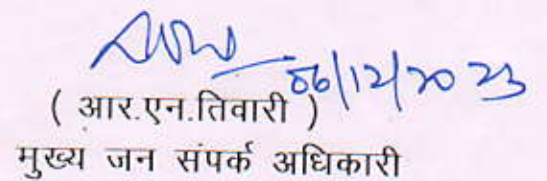 06/12/2023
( आर.एन.तिवारी )
मुख्य जन संपर्क अधिकारी